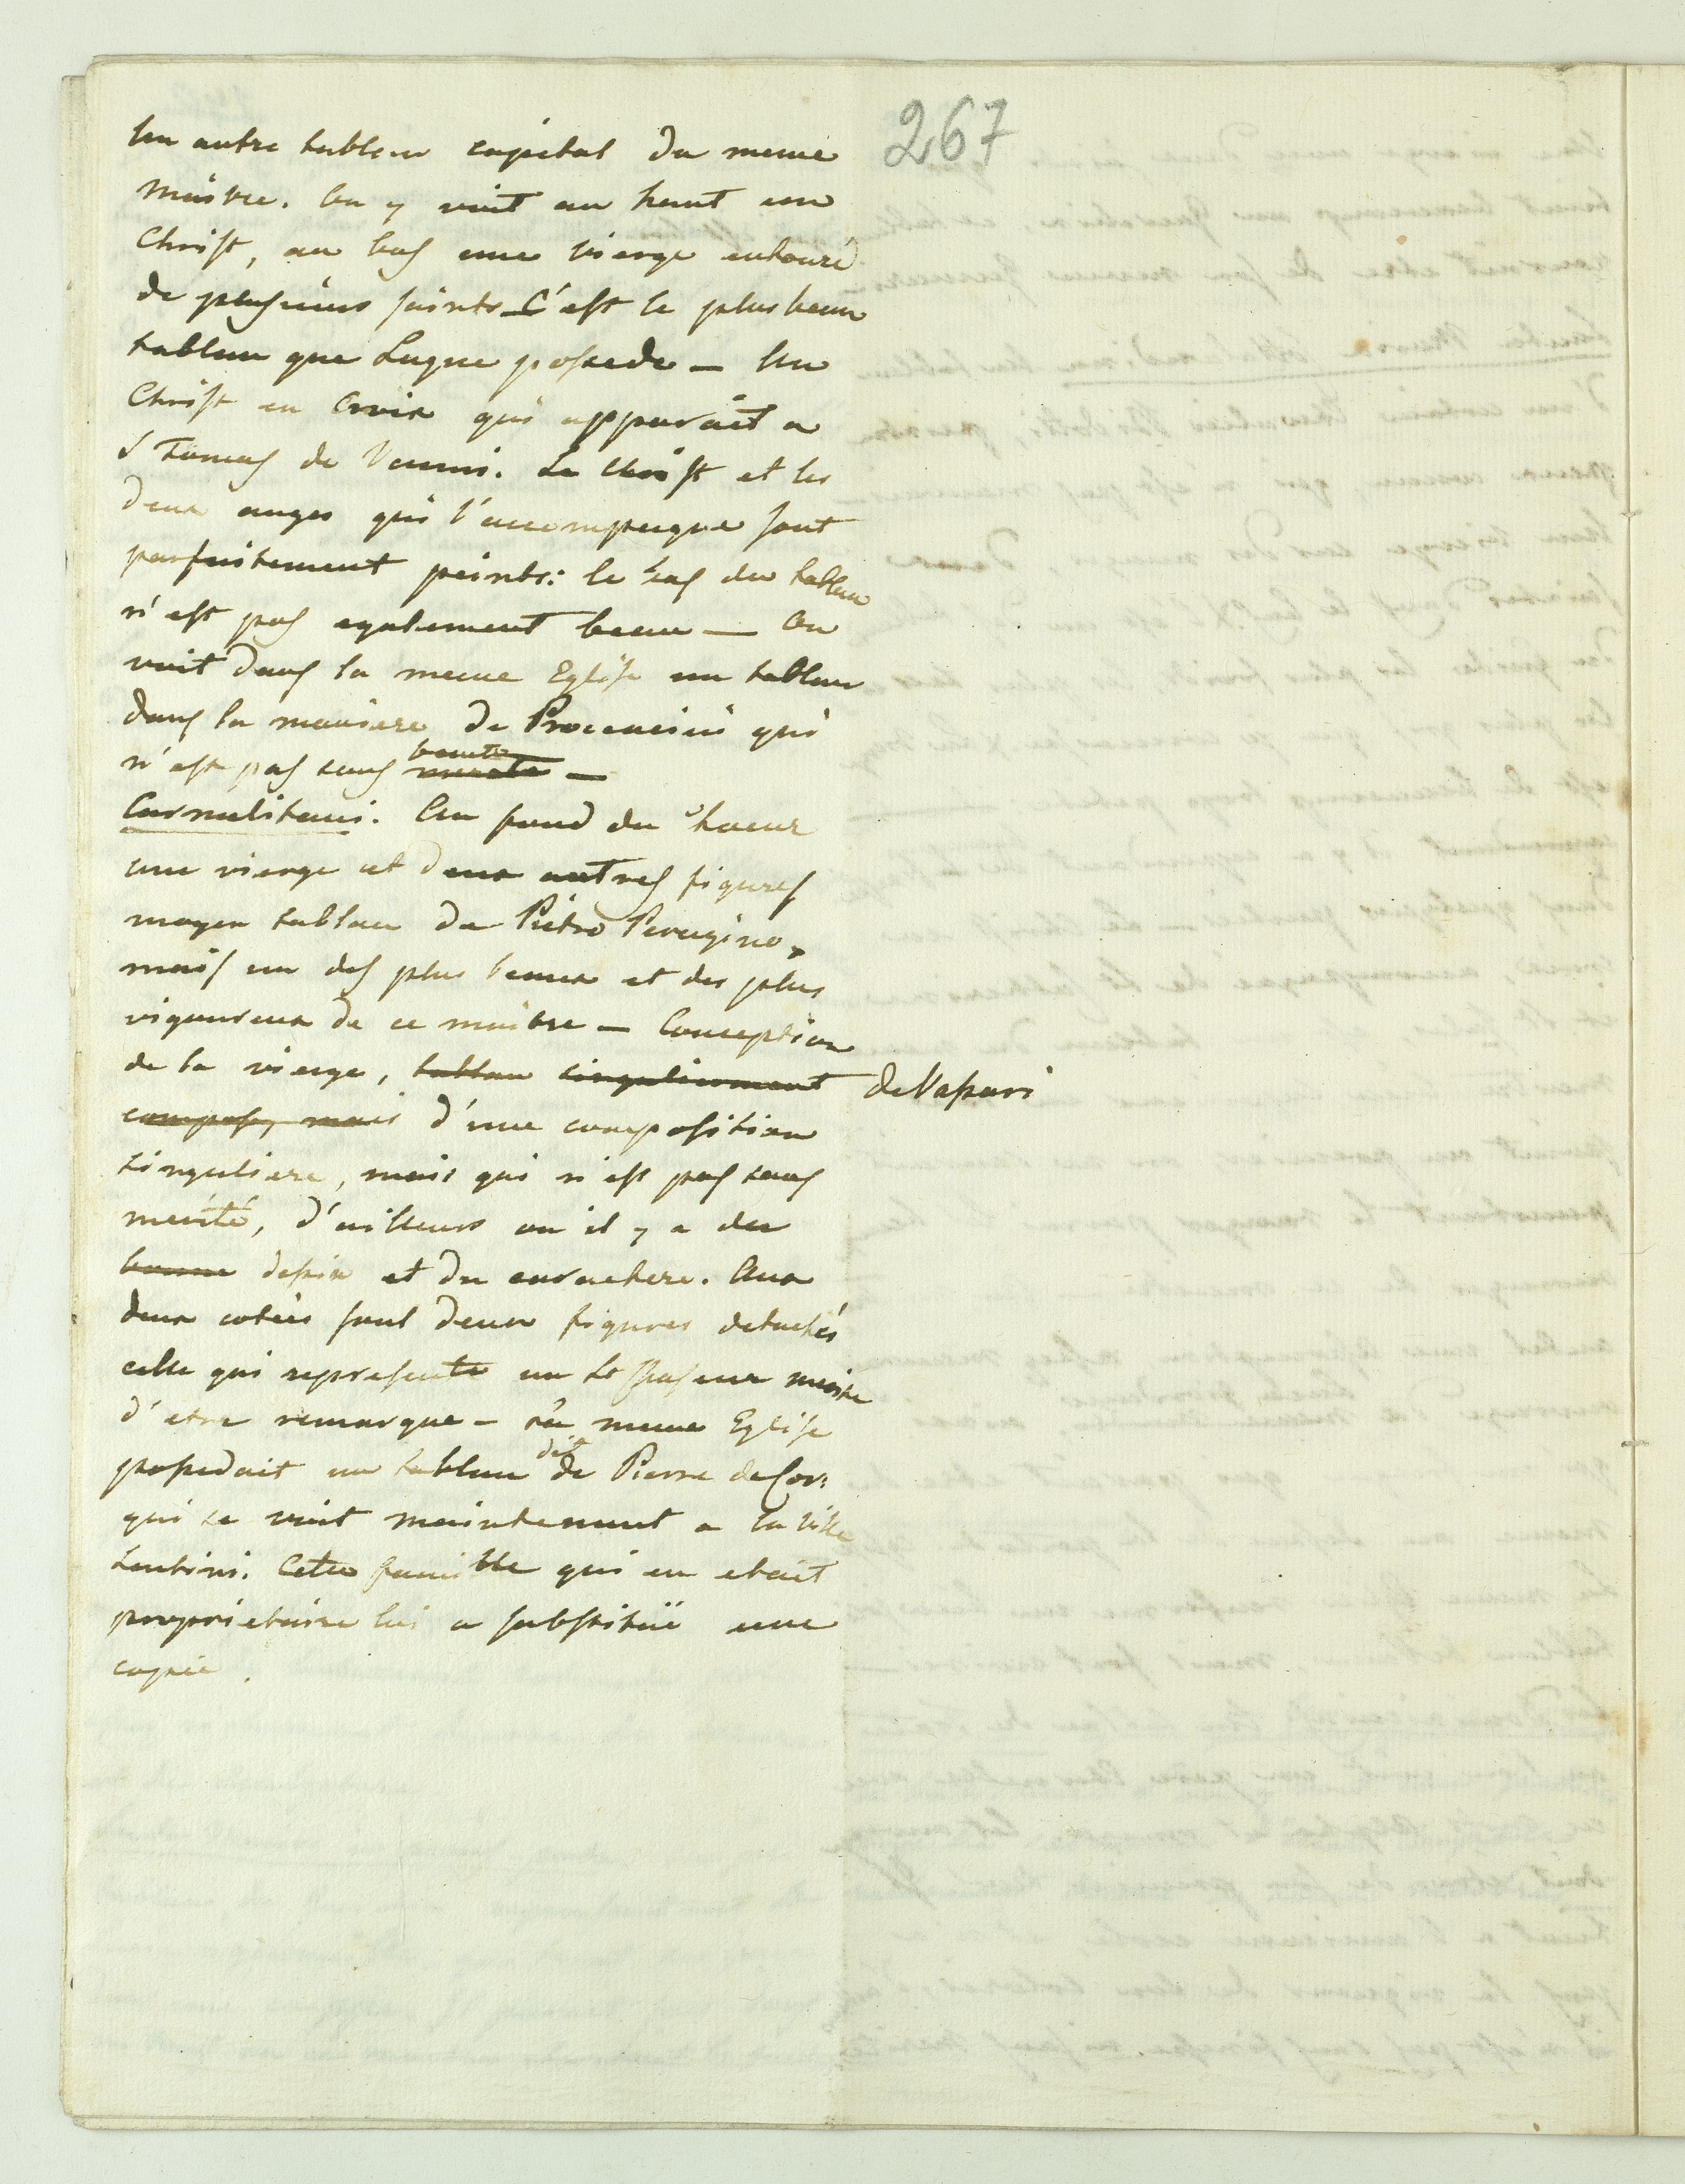 267
Un autre tableau capital du meme
maitre. On y voit au haut un
Christ, au bas une vierge entouré
de plusieurs saints – C'est le plus beau
tableau que Luque possede – Un
Christ en Croix qui apparait a
S Tomas de . Le Christ et les
deux anges qui l'accompagne sont
parfaitement peints: le bas du tableau
n'est pas egalement beau — On
voit dans la meme Eglise un tableau
dans la maniere de Procacini qui
n'est pas sans beauté –
Carmelitani. Au fond du choeur
une vierge et deux autres figures
moyen tableau de Pietro Perugino,
mais un des plus beaux et des plus
vigoureux de ce maitre – Conception
de la vierge, tableau singulierement de Vasari
compose, mais d'une composition
singuliere, mais qui n'est pas sans
merité, d'ailleurs ou il y a du
bonne dessin et du caractere. Aux
deux cotées sont deux figures detachés
celle qui represente un St merite
d'etre remarque – La meme Eglise
possedait un tableau dit de Pierre de Cor:
qui se voit maintenant a la ville
. Cette famille qui en etait
proprietaire lui a substitüé une
copie.